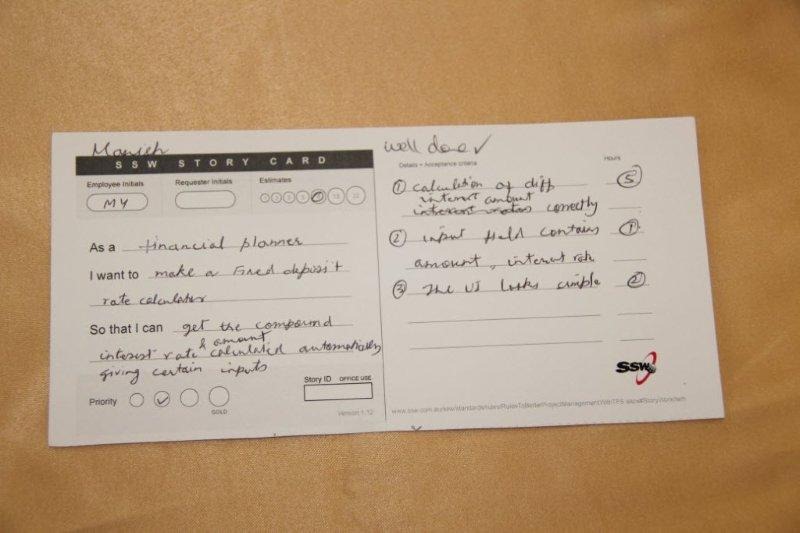 Manish
SSW STORY CARD
Employee Initials
Requester Initials
Estimates
MY
As a financial planner
I want to make a Fixed deposit
rate calculator
So that I can get the compound
& amount
interest rate calculated automatically
giving certain inputs
Priority
GOLD
Story ID OFFICE USE
Version 1.12
well done ✓
Details + Acceptance criteria
Hours
① calculation of diff ⑤
interest amount
interest rates correctly
② input field contains ①
amount, interest rate
③ The UI looks simple ②
SSW